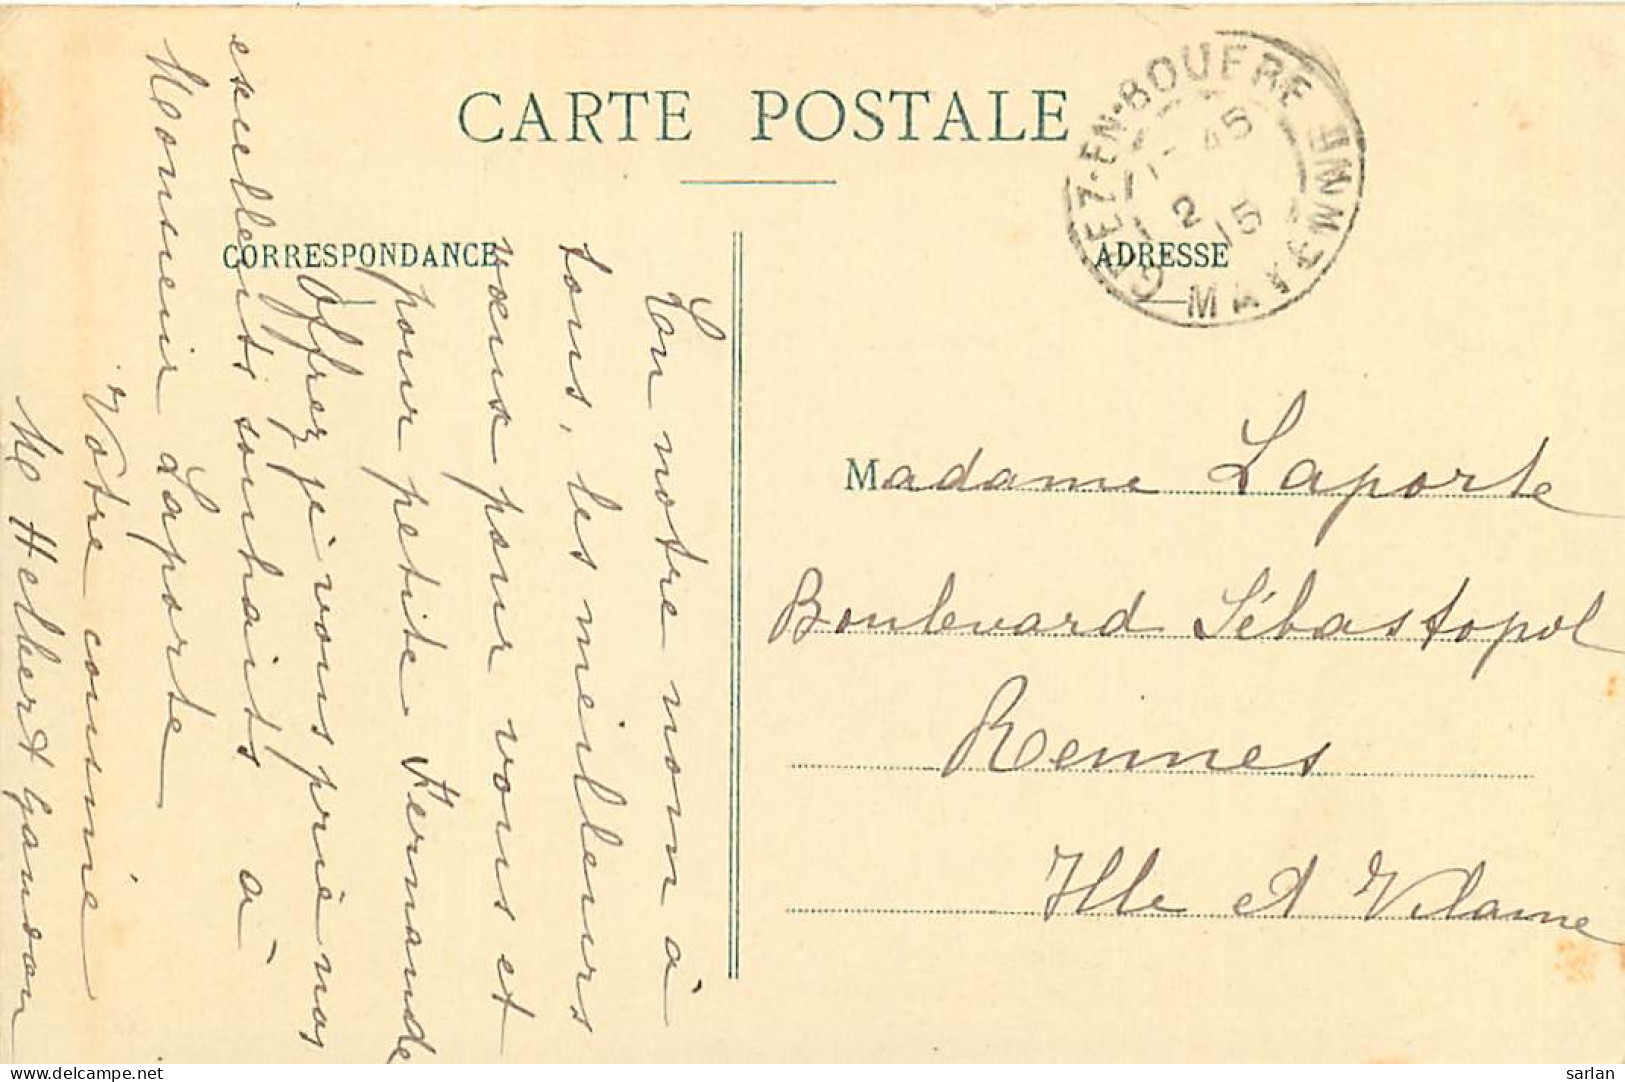 CARTE POSTALE
CORRESPONDANCE
ADRESSE
GREZ-EN-BOUERE
MAYENNE
45
2
15
En notre nom à
tous, les meilleurs
vœux pour vous et
pour petite Fernande
Offrez je vous prie nos
excellents souhaits à
Monsieur Laporte
Votre cousine
M Helbert
Madame Laporte
Boulevard Sébastopol
Rennes
Ille et Vilaine
sarlan